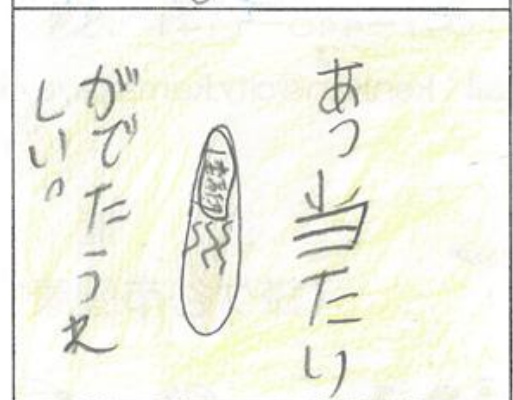 あっ当たり
がでたうれ
しい。